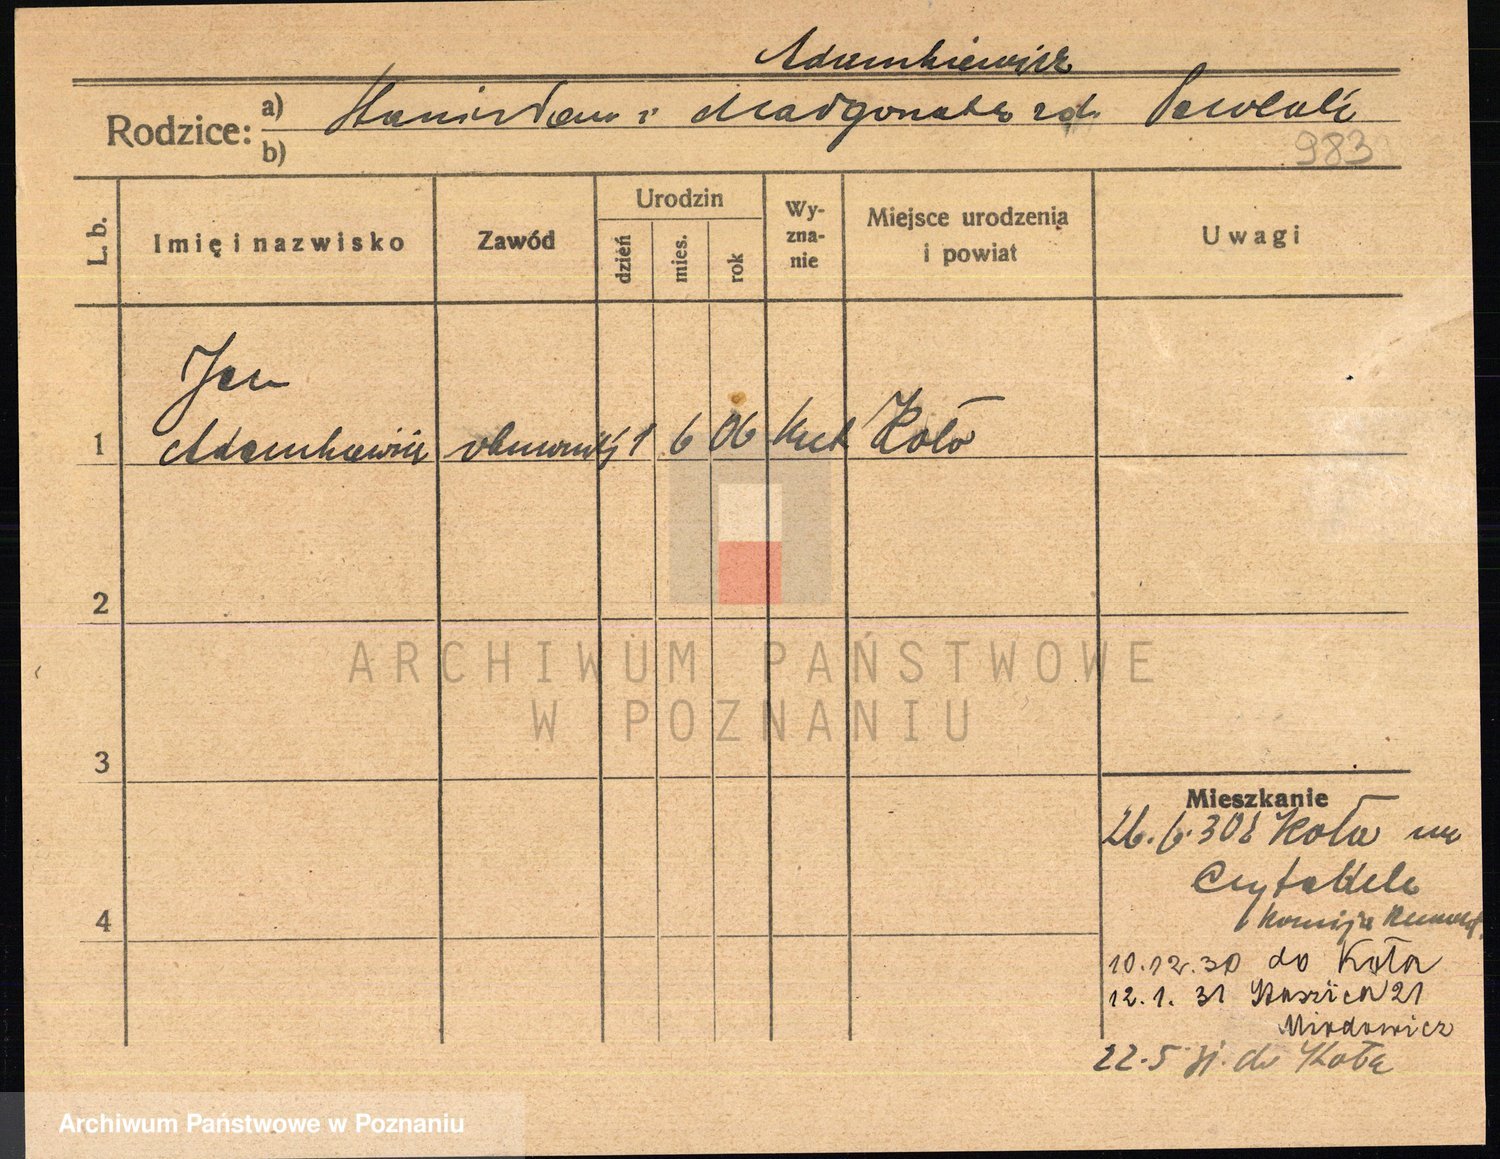 Adamkiewicz
Rodzice: a) Stanisław i Małgorzata zd. Pawlak
b)
983
L. b. Imię i nazwisko Zawód Urodzin dzień mies. rok Wy-zna-nie Miejsce urodzenia i powiat Uwagi
Jan
1 Adamkiewicz 1 6 06 Koło
2
3
4
Mieszkanie
26.6.30 z Koła na
Cytadele
10.12.30 do Koła
12.1.31 Staszica 21
Miodowicz
22.5.31. do Koła
ARCHIWUM PAŃSTWOWE
W POZNANIU
Archiwum Państwowe w Poznaniu